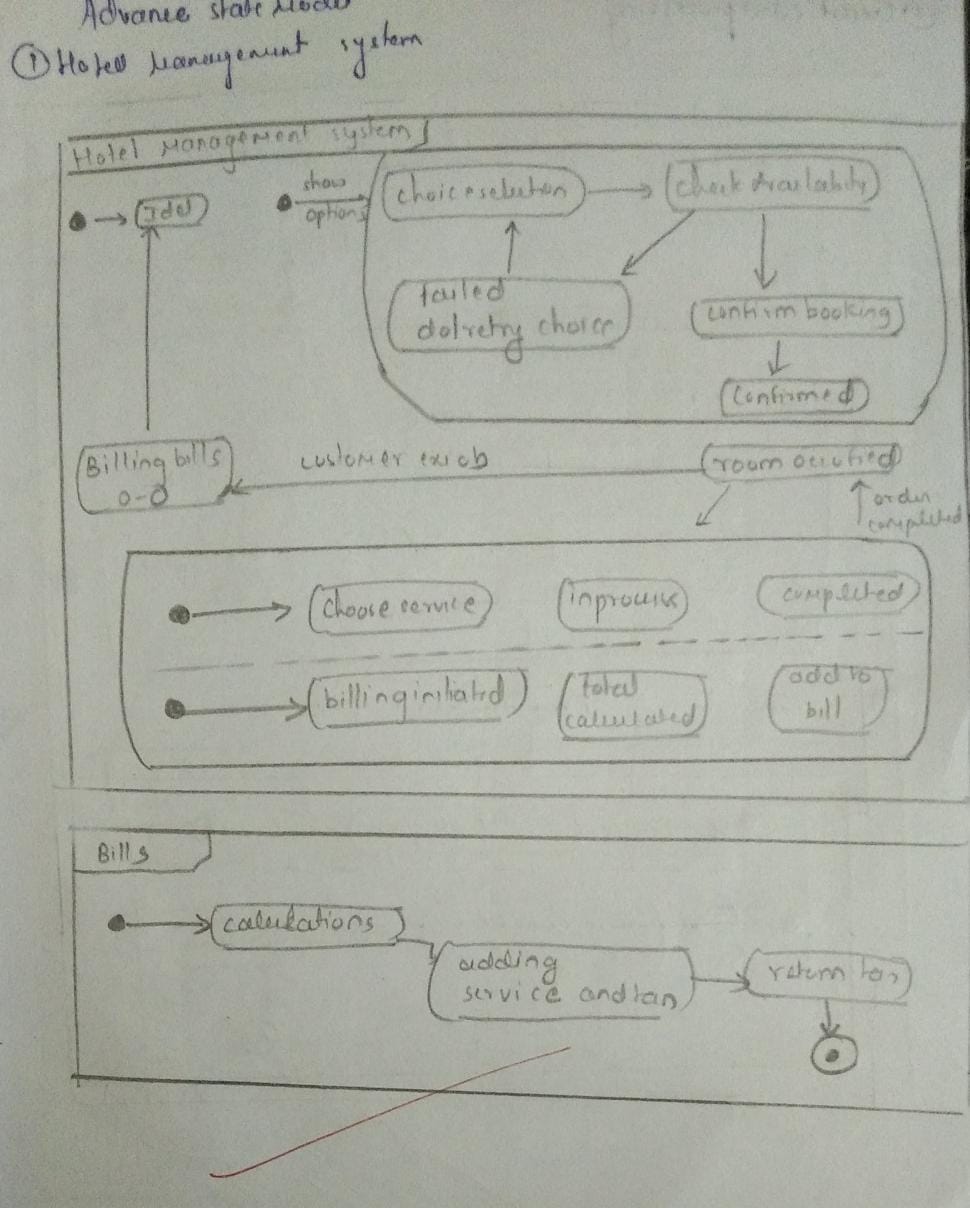 Advance state Model
① Hotel Management system
Hotel Management system
Idel
show
options
choice selection
check Availability
failed
dolretry choice
confirm booking
confirmed
Billing bills
o-o
customer
room occufied
order
completed
choose service
inprocess
completed
billing initiated
total
calculated
add to
bill
Bills
calculations
adding
service and tan
return